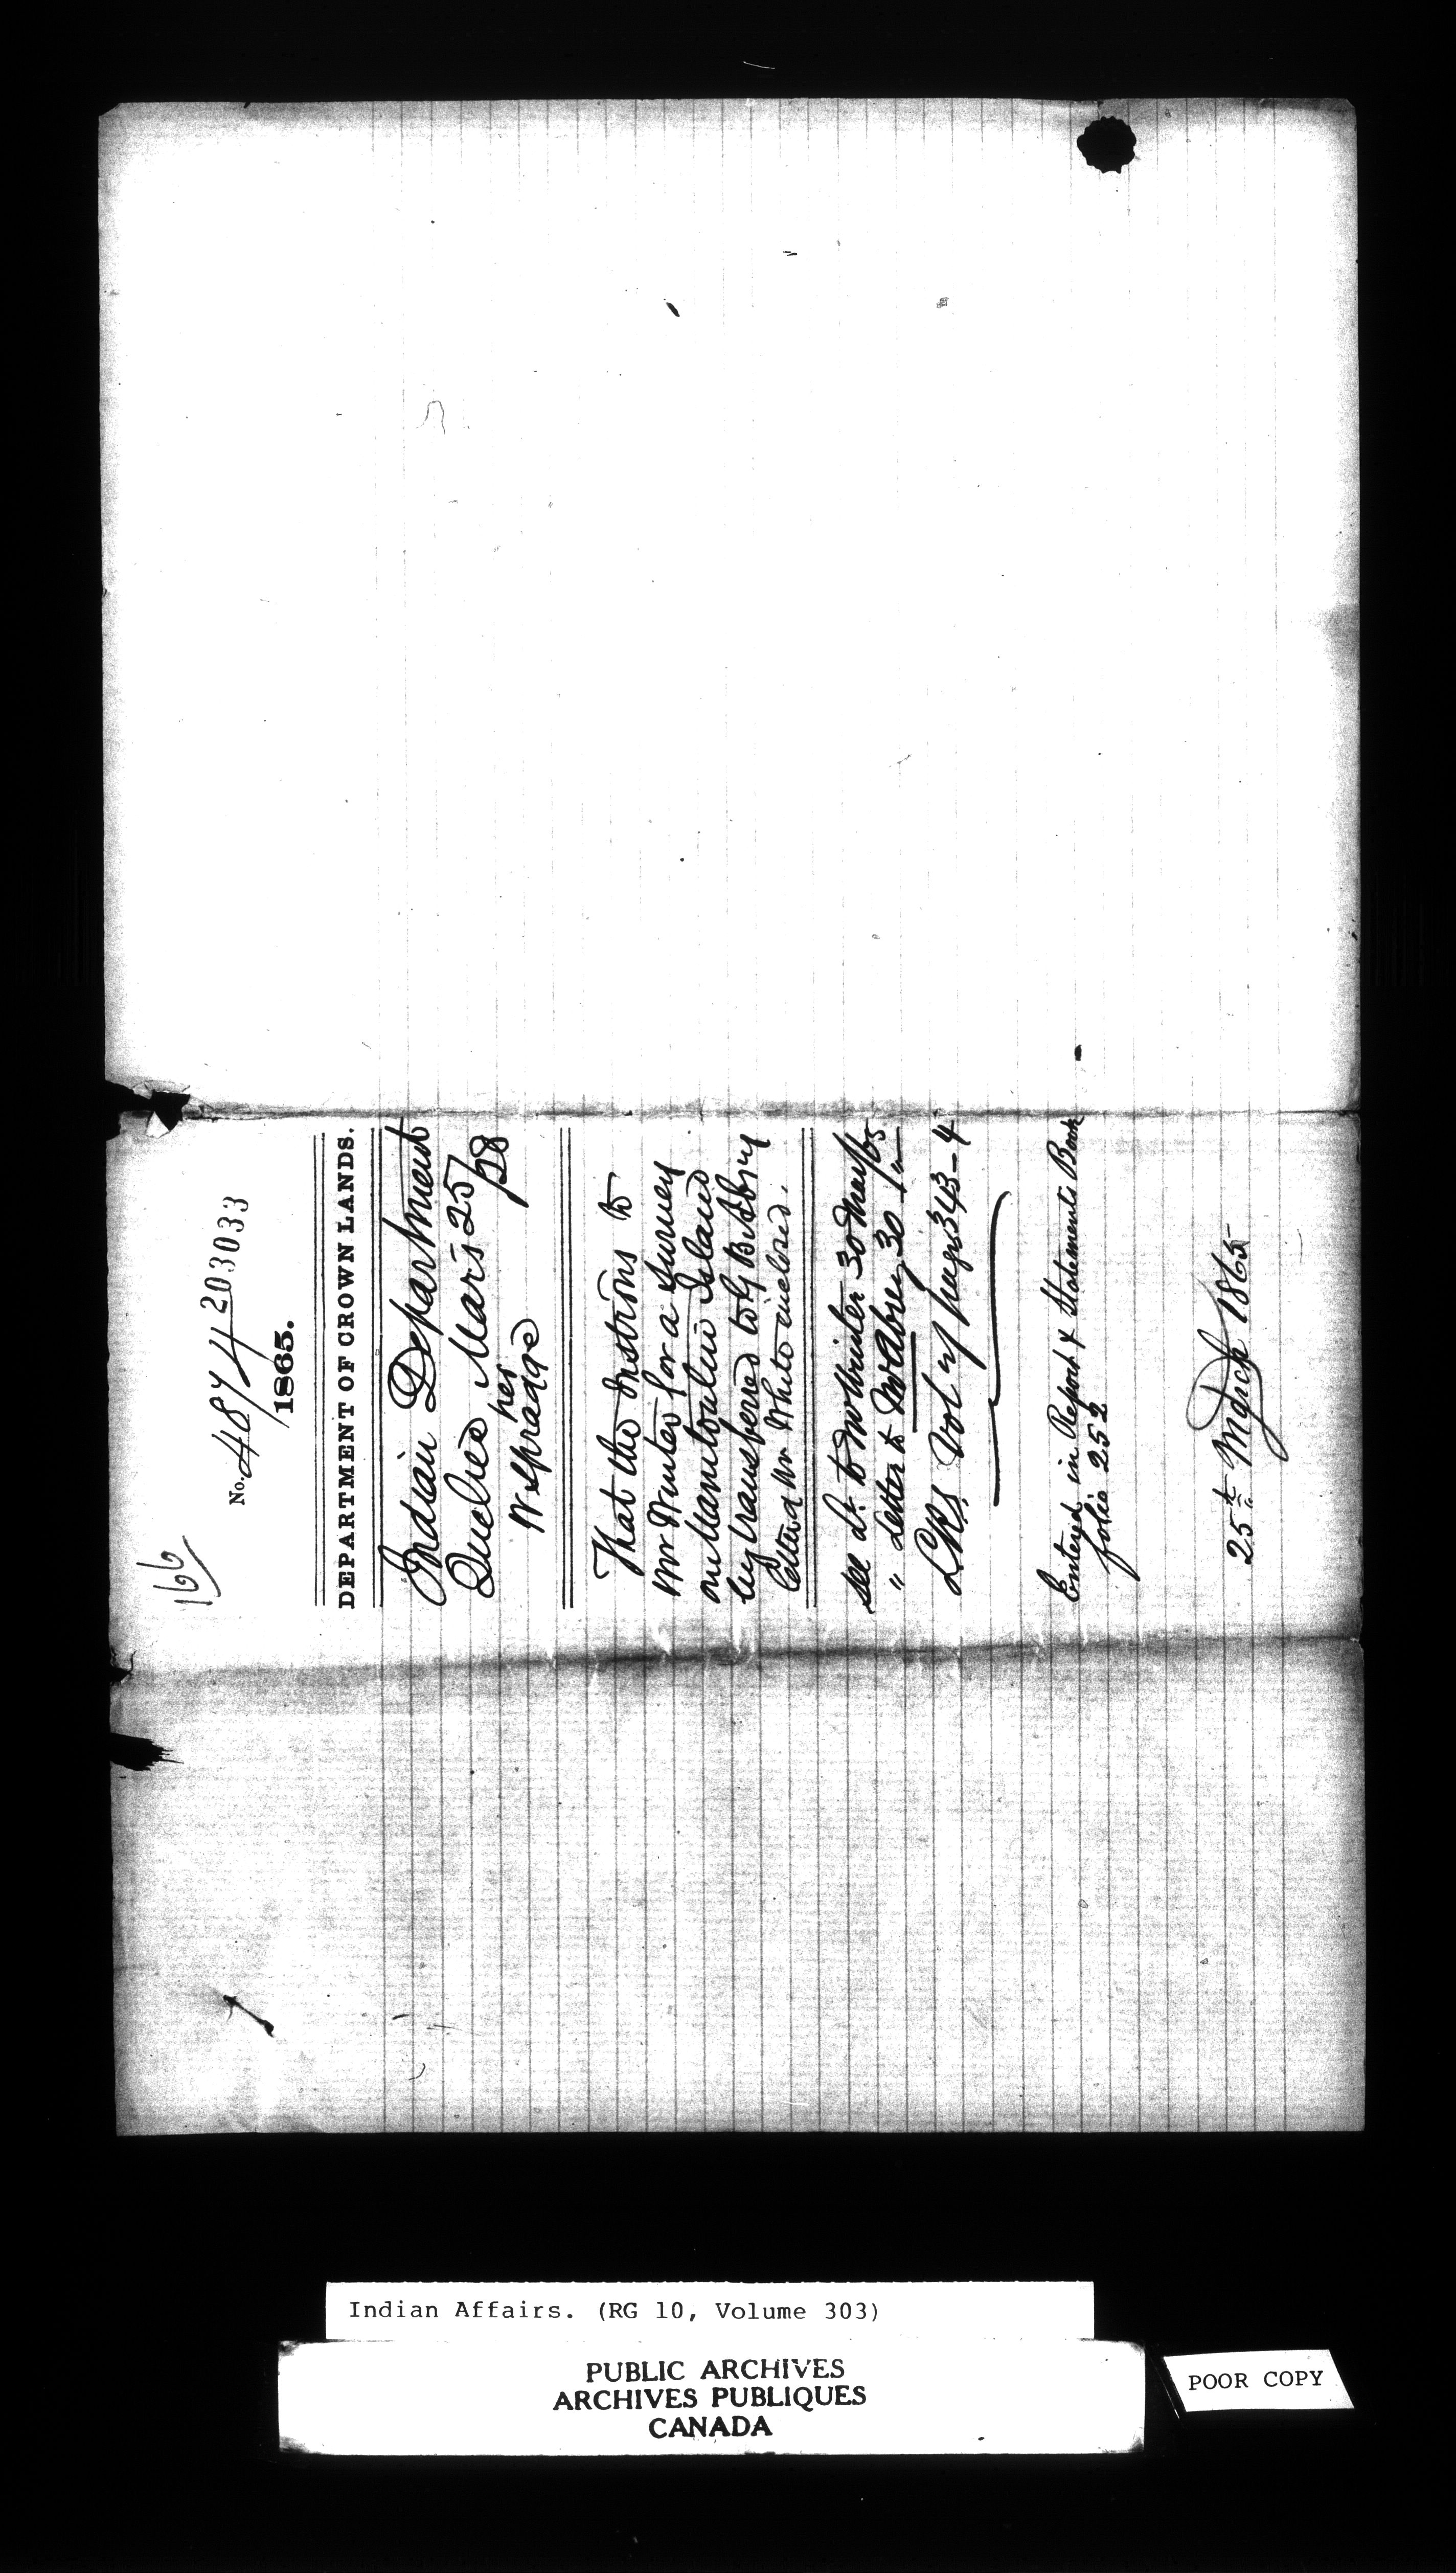 166
No. 4874 203033
/1865.
DEPARTMENT OF CROWN LANDS.
Indian Department
Quebec Mar: 25/28
per
W Spragge
That the Instrons to
Mr Winter for a survey
on Manitoulin Island
be transferred to G B Abrey
letter of Mr White enclosed.
See Lr. to Mr Winter 30 Mar/65
" Letter to Mr Abrey 30 "
L.R.S. Vol pages 343-4
Entered in Report & Statements Book
folio 252
25th March 1865
Indian Affairs. (RG 10, Volume 303)
PUBLIC ARCHIVES
ARCHIVES PUBLIQUES
CANADA
POOR COPY